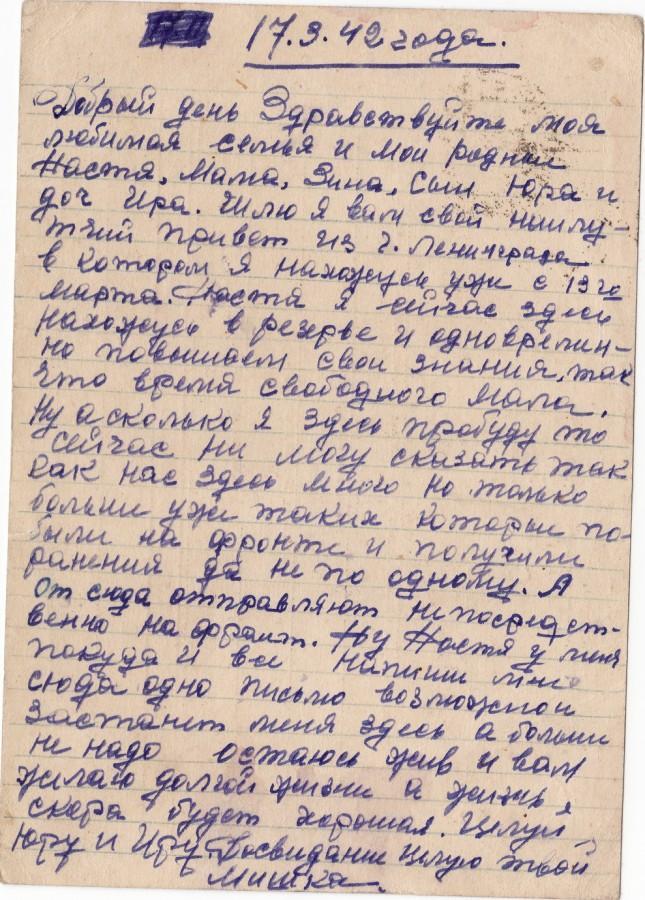 17.3.42 года.
Добрый день Здравствуйте моя
любимая семья и мои родные
Настя, Мама, Зина, Сын Юра и
доч Ира. Шлю я вам свой наилу-
тчий привет из г. Ленинграда
в котором я нахожусь уже с 13го
марта. Настя я сейчас здесь
нахожусь в резерве и одновремен-
но повышаем свои знания, так
что время свободного мала.
Ну а сколько я здесь пробуду то
сейчас ни могу сказать так
как нас здесь много но только
больши уже таких которые по-
были на фронте и получили
ранения да не по одному. А
от сюда отправляют непосредст-
венно на фронт. Ну Настя у меня
покуда и все напиши мне
сюда одно письмо возможнои
застанит меня здесь а больши
не надо остаюсь жив и вам
жилаю долгой жизни а жизнь
скора будет хорошая. Целуй
Юру и Иру Досвидание целую твой
Мишка.